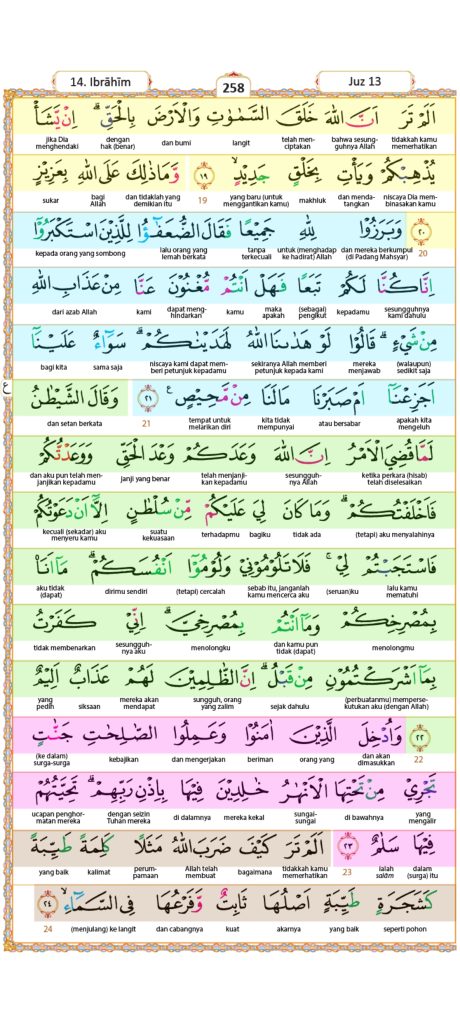 14. Ibrāhīm
258
Juz 13
اَلَمْ تَرَ اَنَّ اللّٰهَ خَلَقَ السَّمٰوٰتِ وَالْاَرْضَ بِالْحَقِّۗ اِنْ يَّشَأْ
tidakkah kamu memerhatikan bahwa sesungguhnya Allah telah menciptakan langit dan bumi dengan hak (benar) jika Dia menghendaki
يُذْهِبْكُمْ وَيَأْتِ بِخَلْقٍ جَدِيْدٍۙ ١٩ وَّمَا ذٰلِكَ عَلَى اللّٰهِ بِعَزِيْزٍ
niscaya Dia membinasakan kamu dan mendatangkan makhluk yang baru (untuk menggantikan kamu) 19 dan tidaklah yang demikian itu bagi Allah sukar
٢٠ وَبَرَزُوْا لِلّٰهِ جَمِيْعًا فَقَالَ الضُّعَفٰۤؤُا لِلَّذِيْنَ اسْتَكْبَرُوْٓا
20 dan mereka berkumpul (di Padang Mahsyar) untuk (menghadap ke hadirat) Allah tanpa terkecuali lalu orang yang lemah berkata kepada orang yang sombong
اِنَّا كُنَّا لَكُمْ تَبَعًا فَهَلْ اَنْتُمْ مُّغْنُوْنَ عَنَّا مِنْ عَذَابِ اللّٰهِ
sesungguhnya kami dahulu kepadamu (sebagai) pengikut maka apakah kamu dapat menghindarkan kami dari azab Allah
مِنْ شَيْءٍۗ قَالُوْا لَوْ هَدٰىنَا اللّٰهُ لَهَدَيْنٰكُمْۗ سَوَاۤءٌ عَلَيْنَآ
(walaupun) sedikit saja mereka menjawab sekiranya Allah memberi petunjuk kepada kami niscaya kami dapat memberi petunjuk kepadamu sama saja bagi kita
اَجَزِعْنَآ اَمْ صَبَرْنَا مَا لَنَا مِنْ مَّحِيْصٍ ࣖ ٢١ وَقَالَ الشَّيْطٰنُ
apakah kita mengeluh atau bersabar kita tidak mempunyai tempat untuk melarikan diri 21 dan setan berkata
ع
لَمَّا قُضِيَ الْاَمْرُ اِنَّ اللّٰهَ وَعَدَكُمْ وَعْدَ الْحَقِّ وَوَعَدْتُّكُمْ
ketika perkara (hisab) telah diselesaikan sesungguhnya Allah telah menjanjikan kepadamu janji yang benar dan aku pun telah menjanjikan kepadamu
فَاَخْلَفْتُكُمْۗ وَمَا كَانَ لِيَ عَلَيْكُمْ مِّنْ سُلْطٰنٍ اِلَّآ اَنْ دَعَوْتُكُمْ
(tetapi) aku menyalahinya tidak ada bagiku terhadapmu suatu kekuasaan kecuali (sekadar) aku menyeru kamu
فَاسْتَجَبْتُمْ لِيْۚ فَلَا تَلُوْمُوْنِيْ وَلُوْمُوْٓا اَنْفُسَكُمْۗ مَآ اَنَا۠
lalu kamu mematuhi (seruan)ku sebab itu, janganlah kamu mencerca aku (tetapi) cercalah dirimu sendiri aku tidak (dapat)
بِمُصْرِخِكُمْ وَمَآ اَنْتُمْ بِمُصْرِخِيَّۗ اِنِّيْ كَفَرْتُ
menolongmu dan kamu pun tidak (dapat) menolongku sesungguhnya aku tidak membenarkan
بِمَآ اَشْرَكْتُمُوْنِ مِنْ قَبْلُۗ اِنَّ الظّٰلِمِيْنَ لَهُمْ عَذَابٌ اَلِيْمٌ
(perbuatanmu) mempersekutukan aku (dengan Allah) sejak dahulu sungguh, orang yang zalim mereka akan mendapat siksaan yang pedih
٢٢ وَاُدْخِلَ الَّذِيْنَ اٰمَنُوْا وَعَمِلُوا الصّٰلِحٰتِ جَنّٰتٍ
22 dan akan dimasukkan orang yang beriman dan mengerjakan kebajikan (ke dalam) surga-surga
تَجْرِيْ مِنْ تَحْتِهَا الْاَنْهٰرُ خٰلِدِيْنَ فِيْهَا بِاِذْنِ رَبِّهِمْۗ تَحِيَّتُهُمْ
yang mengalir di bawahnya sungai-sungai mereka kekal di dalamnya dengan seizin Tuhan mereka ucapan penghormatan mereka
فِيْهَا سَلٰمٌ ٢٣ اَلَمْ تَرَ كَيْفَ ضَرَبَ اللّٰهُ مَثَلًا كَلِمَةً طَيِّبَةً
dalam (surga) itu ialah salām 23 tidakkah kamu memerhatikan bagaimana Allah telah membuat perumpamaan kalimat yang baik
كَشَجَرَةٍ طَيِّبَةٍ اَصْلُهَا ثَابِتٌ وَّفَرْعُهَا فِى السَّمَاۤءِۙ ٢٤
seperti pohon yang baik akarnya kuat dan cabangnya (menjulang) ke langit 24